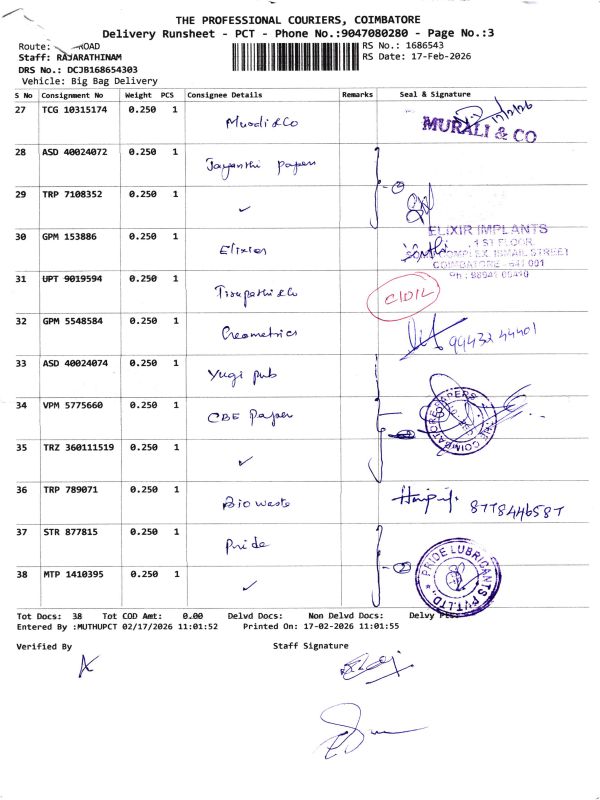 THE PROFESSIONAL COURIERS, COIMBATORE
Delivery Runsheet - PCT - Phone No.:9047080280 - Page No.:3
Route: ROAD
RS No.: 1686543
Staff: RAJARATHINAM
RS Date: 17-Feb-2026
DRS No.: DCJB168654303
Vehicle: Big Bag Delivery
S No Consignment No Weight PCS Consignee Details Remarks Seal & Signature
27 TCG 10315174 0.250 1 Murali &Co 17/2/26
MURALI & CO
28 ASD 40024072 0.250 1 Jayanthi papers
29 TRP 7108352 0.250 1 ✓
30 GPM 153886 0.250 1 Elixier
ELIXIR IMPLANTS
1 ST FLOOR,
COMPLEX ISMAIL STREET
COIMBATORE - 641 001
31 UPT 9019594 0.250 1 Tirupathi &Co
32 GPM 5548584 0.250 1 Geometrics 99432 44401
33 ASD 40024074 0.250 1 Yugi pub
34 VPM 5775660 0.250 1 CBE Paper
THE COIMBATORE PAPERS
35 TRZ 360111519 0.250 1 ✓
36 TRP 789071 0.250 1 Bio waste 8778446587
37 STR 877815 0.250 1 Pride
PRIDE LUBRICANTS PVT.LTD.,
38 MTP 1410395 0.250 1 ✓
Tot Docs: 38 Tot COD Amt: 0.00 Delvd Docs: Non Delvd Docs: Delvy
Entered By :MUTHUPCT 02/17/2026 11:01:52 Printed On: 17-02-2026 11:01:55
Verified By Staff Signature